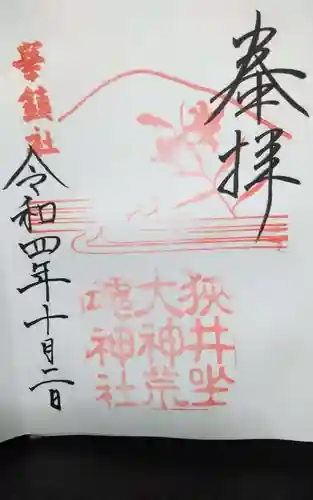 奉拝
華鎮社
狭井坐
大神荒
魂神社
令和四年十月二日